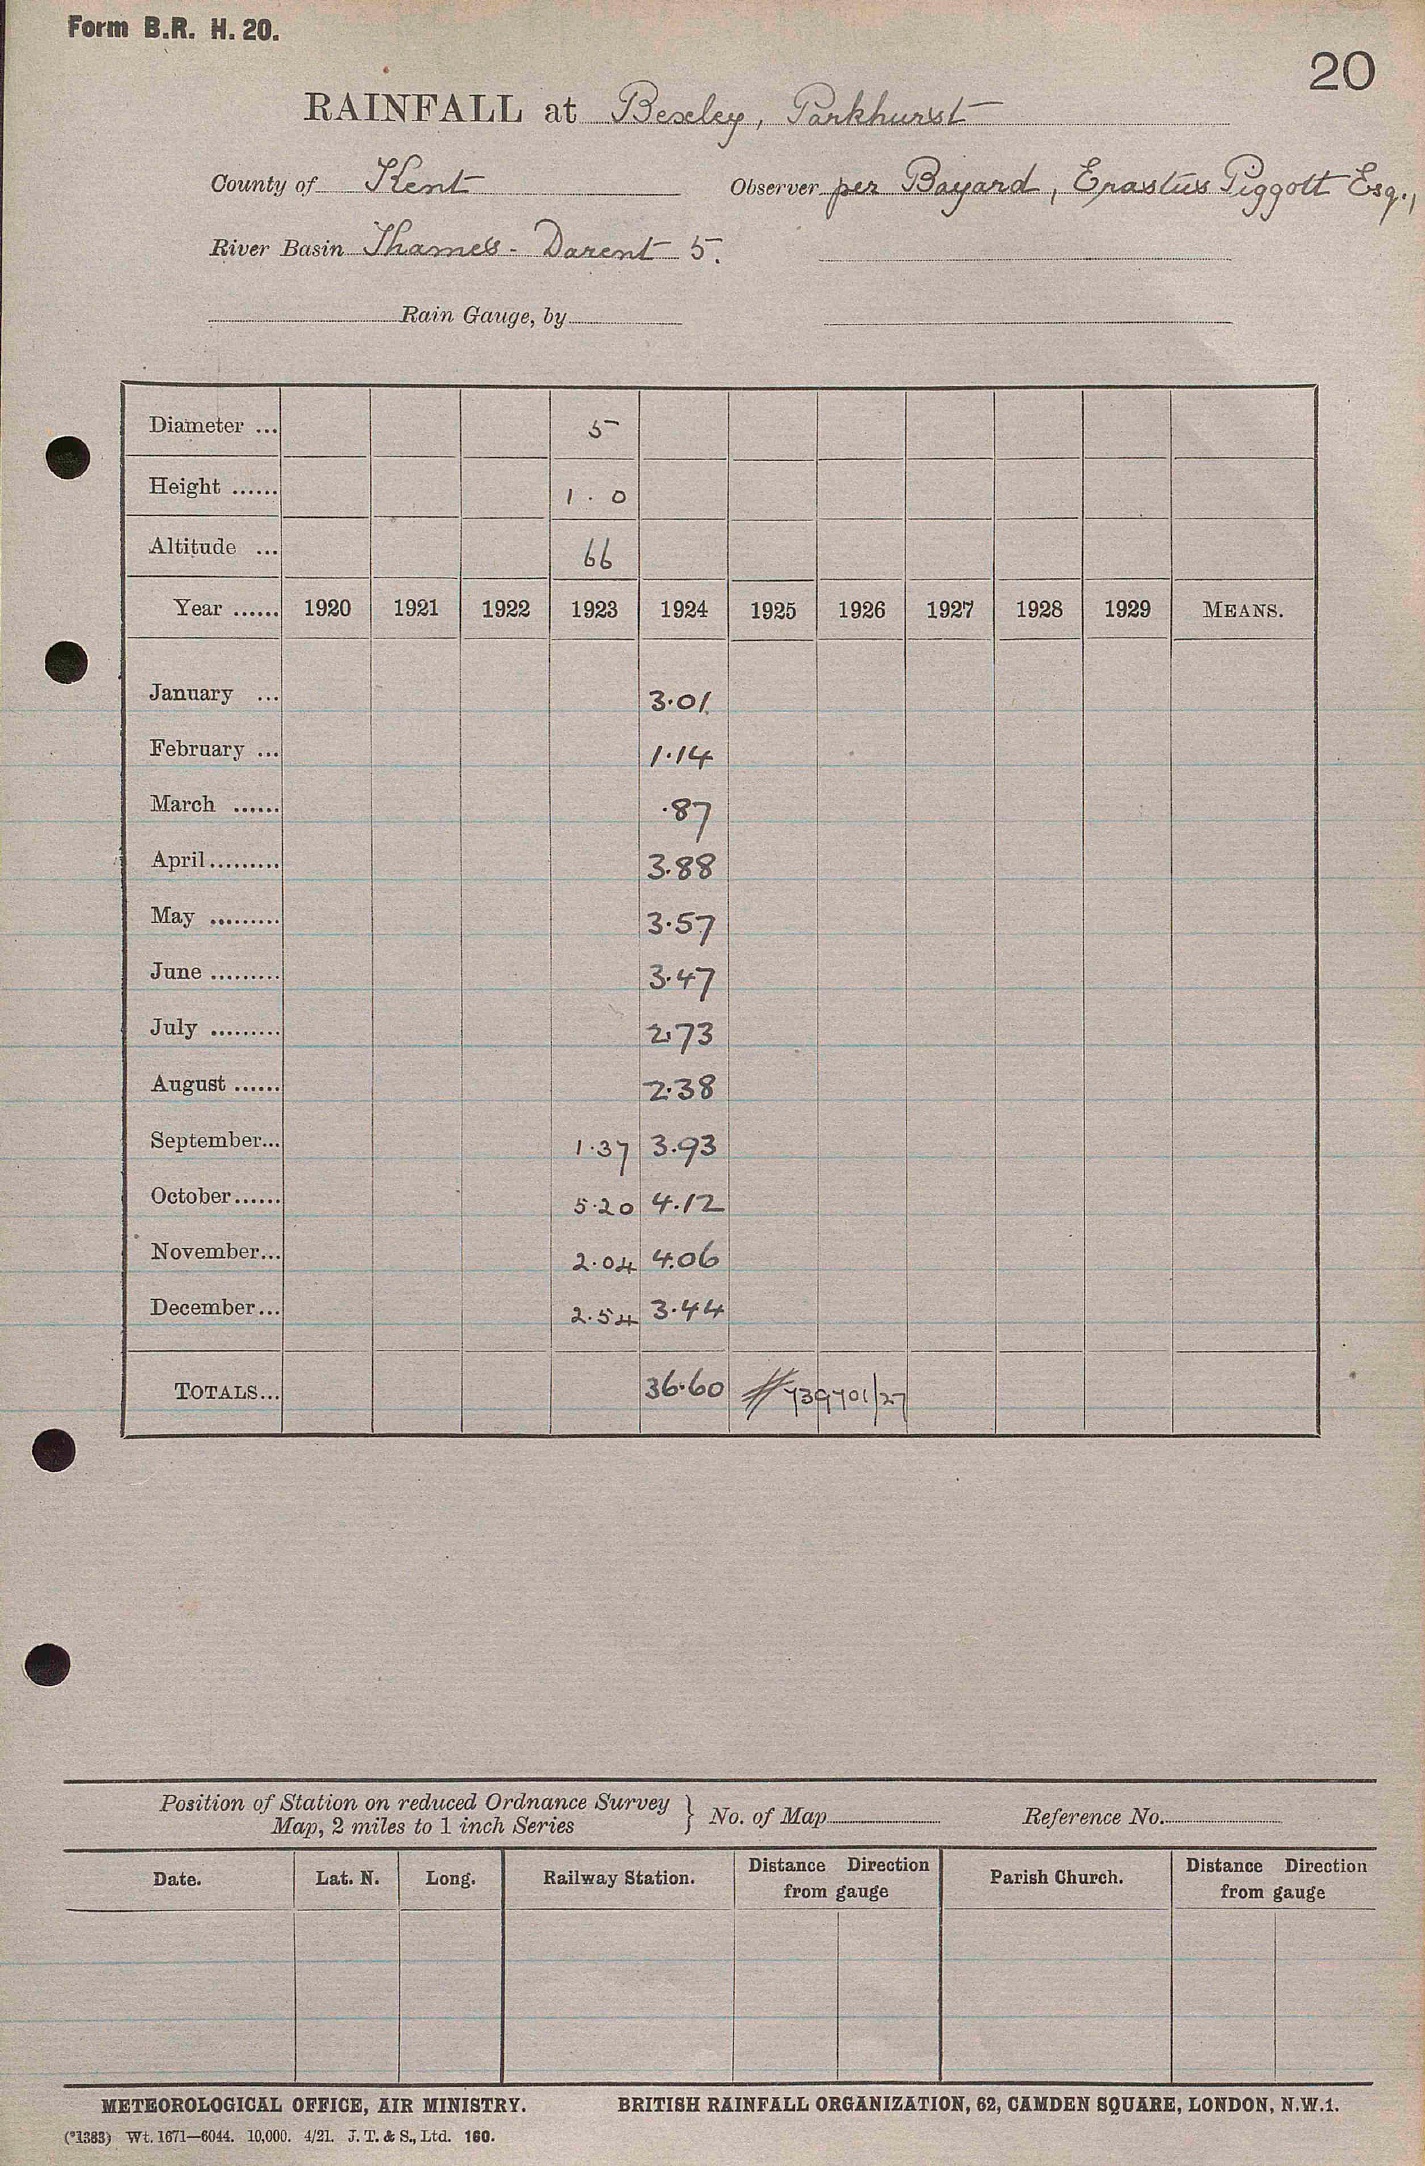 Form B.R. H. 20.
20
RAINFALL at Bexley, Parkhurst
County of Kent Observer per Bayard, Erastus Piggott Esq.,
River Basin Thames - Darent 5.
Rain Gauge, by
Diameter ... 5
Height ...... 1 . 0
Altitude ... 66
Year ...... 1920 1921 1922 1923 1924 1925 1926 1927 1928 1929 MEANS.
January ... 3.01
February ... 1.14
March ...... .87
April ......... 3.88
May ......... 3.57
June ......... 3.47
July ......... 2.73
August ...... 2.38
September... 1.37 3.93
October...... 5.20 4.12
November... 2.04 4.06
December... 2.54 3.44
TOTALS... 36.60 739701/27
Position of Station on reduced Ordnance Survey
Map, 2 miles to 1 inch Series } No. of Map Reference No.
Date. Lat. N. Long. Railway Station. Distance Direction from gauge Parish Church. Distance Direction from gauge
METEOROLOGICAL OFFICE, AIR MINISTRY. BRITISH RAINFALL ORGANIZATION, 62, CAMDEN SQUARE, LONDON, N.W.1.
(*1383) Wt. 1671—6044. 10,000. 4/21. J. T. & S., Ltd. 160.